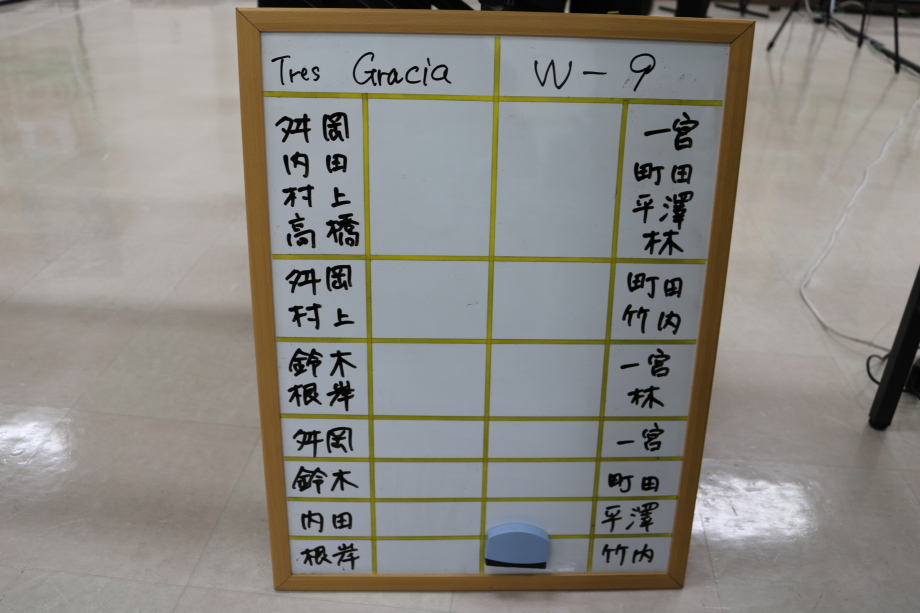 Tres Gracia W-9
舛岡 一宮
内田 町田
村上 平澤
高橋 林
舛岡 町田
村上 竹内
鈴木 一宮
根岸 林
舛岡 一宮
鈴木 町田
内田 平澤
根岸 竹内